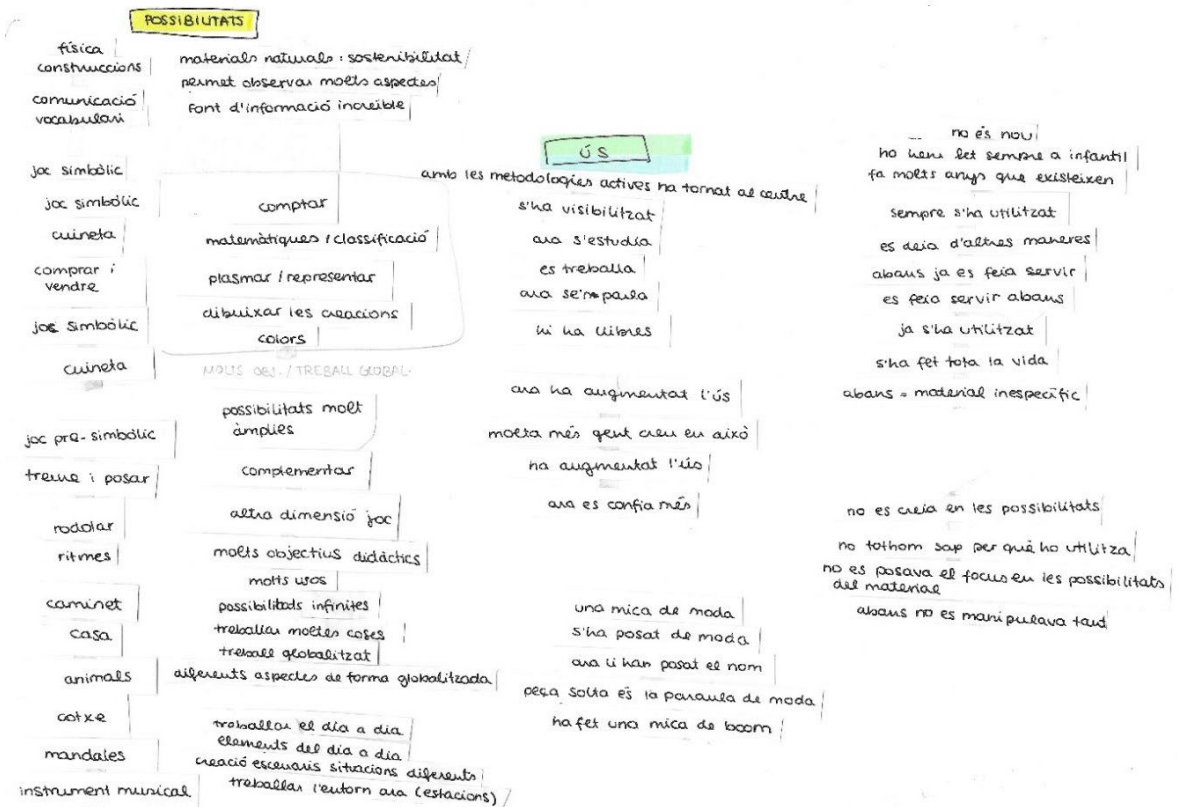 POSSIBILITATS
física
construccions
comunicació
vocabulari
joc simbòlic
joc simbòlic
cuineta
comprar i
vendre
joc simbòlic
cuineta
joc pre-simbòlic
treure i posar
rodolar
ritmes
caminet
casa
animals
cotxe
mandales
instrument musical
materials naturals: sostenibilitat
permet observar molts aspectes
Font d'informació increïble
comptar
matemàtiques / classificació
plasmar / representar
dibuixar les creacions
colors
MOLTS OBJ. / TREBALL GLOBAL.
possibilitats molt
àmplies
complementar
altra dimensió joc
molts objectius didàctics
molts usos
possibilitats infinites
treballar moltes coses
treball globalitzat
diferents aspectes de forma globalitzada
treballar el dia a dia
elements del dia a dia
creació escenaris situacions diferents
treballar l'entorn ara (estacions)
ÚS
amb les metodologies actives ha tornat al centre
s'ha visibilitzat
ara s'estudia
es treballa
ara se'n parla
hi ha llibres
ara ha augmentat l'ús
molta més gent creu en això
ha augmentat l'ús
ara es confia més
una mica de moda
s'ha posat de moda
ara li han posat el nom
peça solta és la paraula de moda
ha fet una mica de boom
no és nou
ho hem fet sempre a infantil
fa molts anys que existeixen
sempre s'ha utilitzat
es deia d'altres maneres
abans ja es feia servir
es feia servir abans
ja s'ha utilitzat
s'ha fet tota la vida
abans = material inespecífic
no es creia en les possibilitats
no tothom sap per què ho utilitza
no es posava el focus en les possibilitats
del material
abans no es manipulava tant